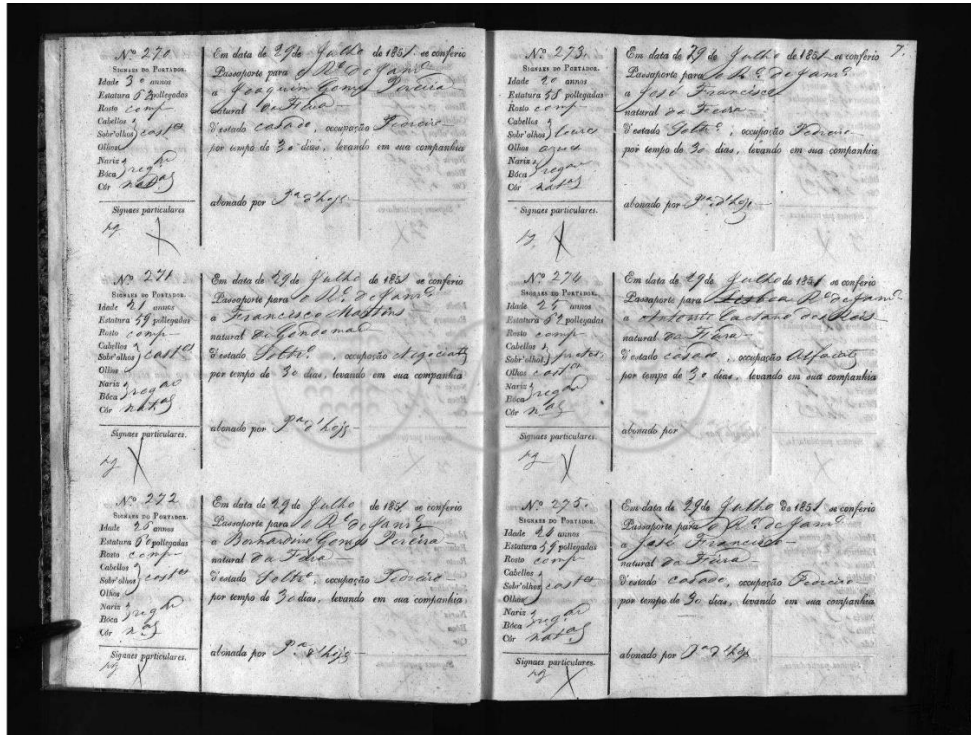 Nº 270
SIGNAES DO PORTADOR.
Idade 30 annos
Estatura 62 pollegadas
Rosto comp
Cabellos
Sobr'olhos castos
Olhos
Nariz
Bôca regar
Côr natal
Signaes particulares.
Em data de 29 de Julho de 1851. se conferio
Passaporte para o Rº de Janrº
a Joaquim Gomes Pereira
natural da Feira
d'estado casado, occupação Pedreiro
por tempo de 30 dias, levando em sua companhia
abonado por Pª d'hoje
Nº 271
SIGNAES DO PORTADOR.
Idade 21 annos
Estatura 59 pollegadas
Rosto comp
Cabellos
Sobr'olhos castos
Olhos
Nariz
Bôca regar
Côr natal
Signaes particulares.
Em data de 29 de Julho de 1851 se conferio
Passaporte para o Rº de Janrº
a Francisco Martins
natural de Gondomar
d'estado Soltrº, occupação Negociante
por tempo de 30 dias, levando em sua companhia
abonado por Pª d'hoje
Nº 272
SIGNAES DO PORTADOR.
Idade 26 annos
Estatura 60 pollegadas
Rosto comp
Cabellos
Sobr'olhos castos
Olhos
Nariz
Bôca regar
Côr nal
Signaes particulares.
Em data de 29 de Julho de 1851 se conferio
Passaporte para o Rº de Janrº
a Bernardino Gomes Pereira
natural da Feira
d'estado Soltrº, occupação Pedreiro
por tempo de 30 dias, levando em sua companhia
abonada por Pª d'hoje
7.
Nº 273.
SIGNAES DO PORTADOR.
Idade 20 annos
Estatura 58 pollegadas
Rosto comp
Cabellos
Sobr'olhos louros
Olhos azues
Nariz
Bôca regar
Côr natal
Signaes particulares.
Em data de 29 de Julho de 1851 se conferio
Passaporte para o Rº de Janrº
a José Francisco
natural da Feira
d'estado Soltrº, occupação Pedreiro
por tempo de 30 dias, levando em sua companhia
abonado por Pª d'hoje
Nº 274
SIGNAES DO PORTADOR.
Idade 25 annos
Estatura 62 pollegadas
Rosto comp
Cabellos
Sobr'olhos pretos
Olhos castos
Nariz
Bôca regar
Côr nal
Signaes particulares.
Em data de 29 de Julho de 1851 se conferio
Passaporte para Lisboa Rº de Janrº
a Antonio Caetano dos Reis
natural da Feira
d'estado casado, occupação Alfaiate
por tempo de 30 dias, levando em sua companhia
abonado por
Nº 275.
SIGNAES DO PORTADOR.
Idade 26 annos
Estatura 59 pollegadas
Rosto comp
Cabellos
Sobr'olhos castos
Olhos
Nariz
Bôca regar
Côr natal
Signaes particulares.
Em data de 29 de Julho de 1851 se conferio
Passaporte para o Rº de Janrº
a José Francisco
natural da Feira
d'estado casado, occupação Pedreiro
por tempo de 30 dias, levando em sua companhia
abonado por Pª d'hoje